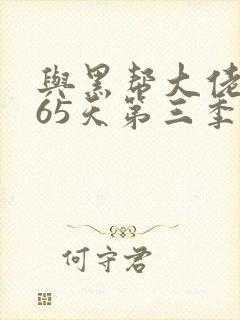 與黑帮大佬
65天第三季
何守君